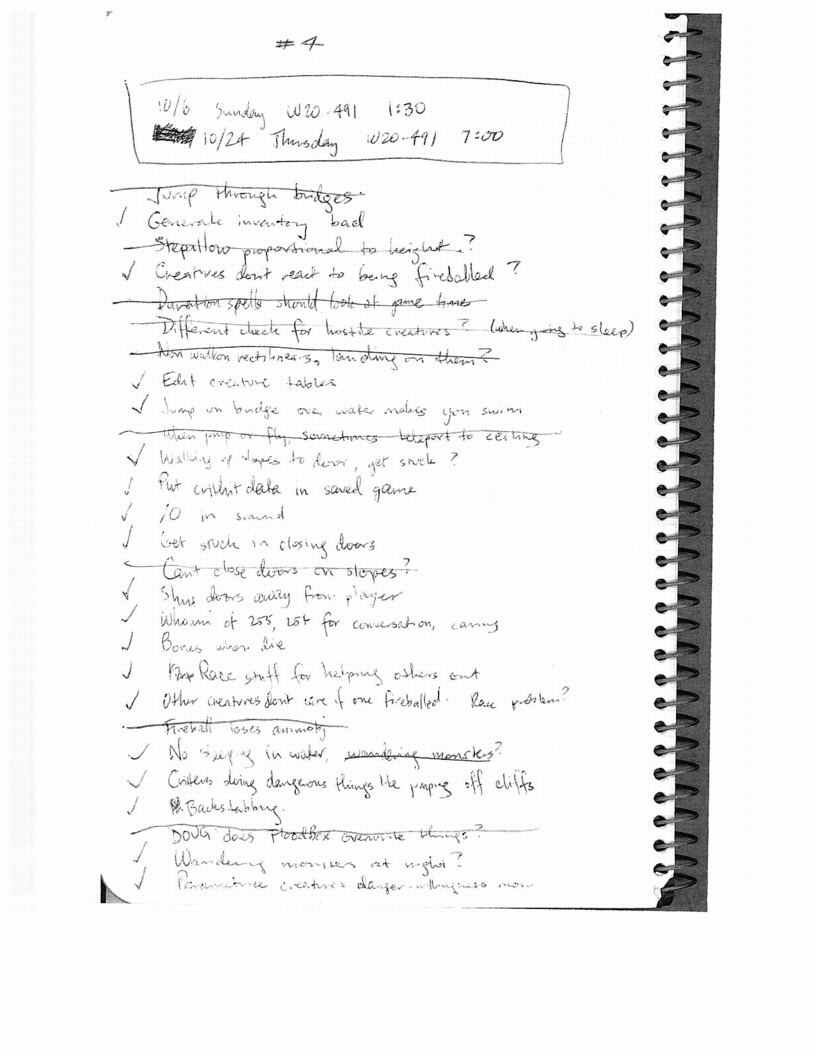 #4
10/6 Sunday W20-491 1:30
10/24 Thursday W20-491 7:00
Jump through bridges.
Generate inventory bad
Stepallow proportional to height.?
Creatures don't react to being fireballed?
Duration spells should look at game time
Different check for hostile creatures? (when going to sleep)
Non walkon rectilinears, landing on them?
Edit creature tables
Jump on bridge over water makes you swim
When jump or fly, sometimes teleport to ceiling
Walking up slopes to door, get stuck?
Put crithit data in saved game
10 in sound
Get stuck in closing doors
Can't close doors on slopes?
Shus doors away from player
Whoami of 255, 254 for conversation, caring
Bones when die
Race stuff for helping others out
Other creatures don't care if one fireballed. Race problem?
Fireball loses animobj
No sleeping in water, wandering monsters?
Critters doing dangerous things like jumping off cliffs
Backstabbing.
DOUG does FloodBox overwrite things?
Wandering monsters at night?
Parametrize creatures danger-willingness more